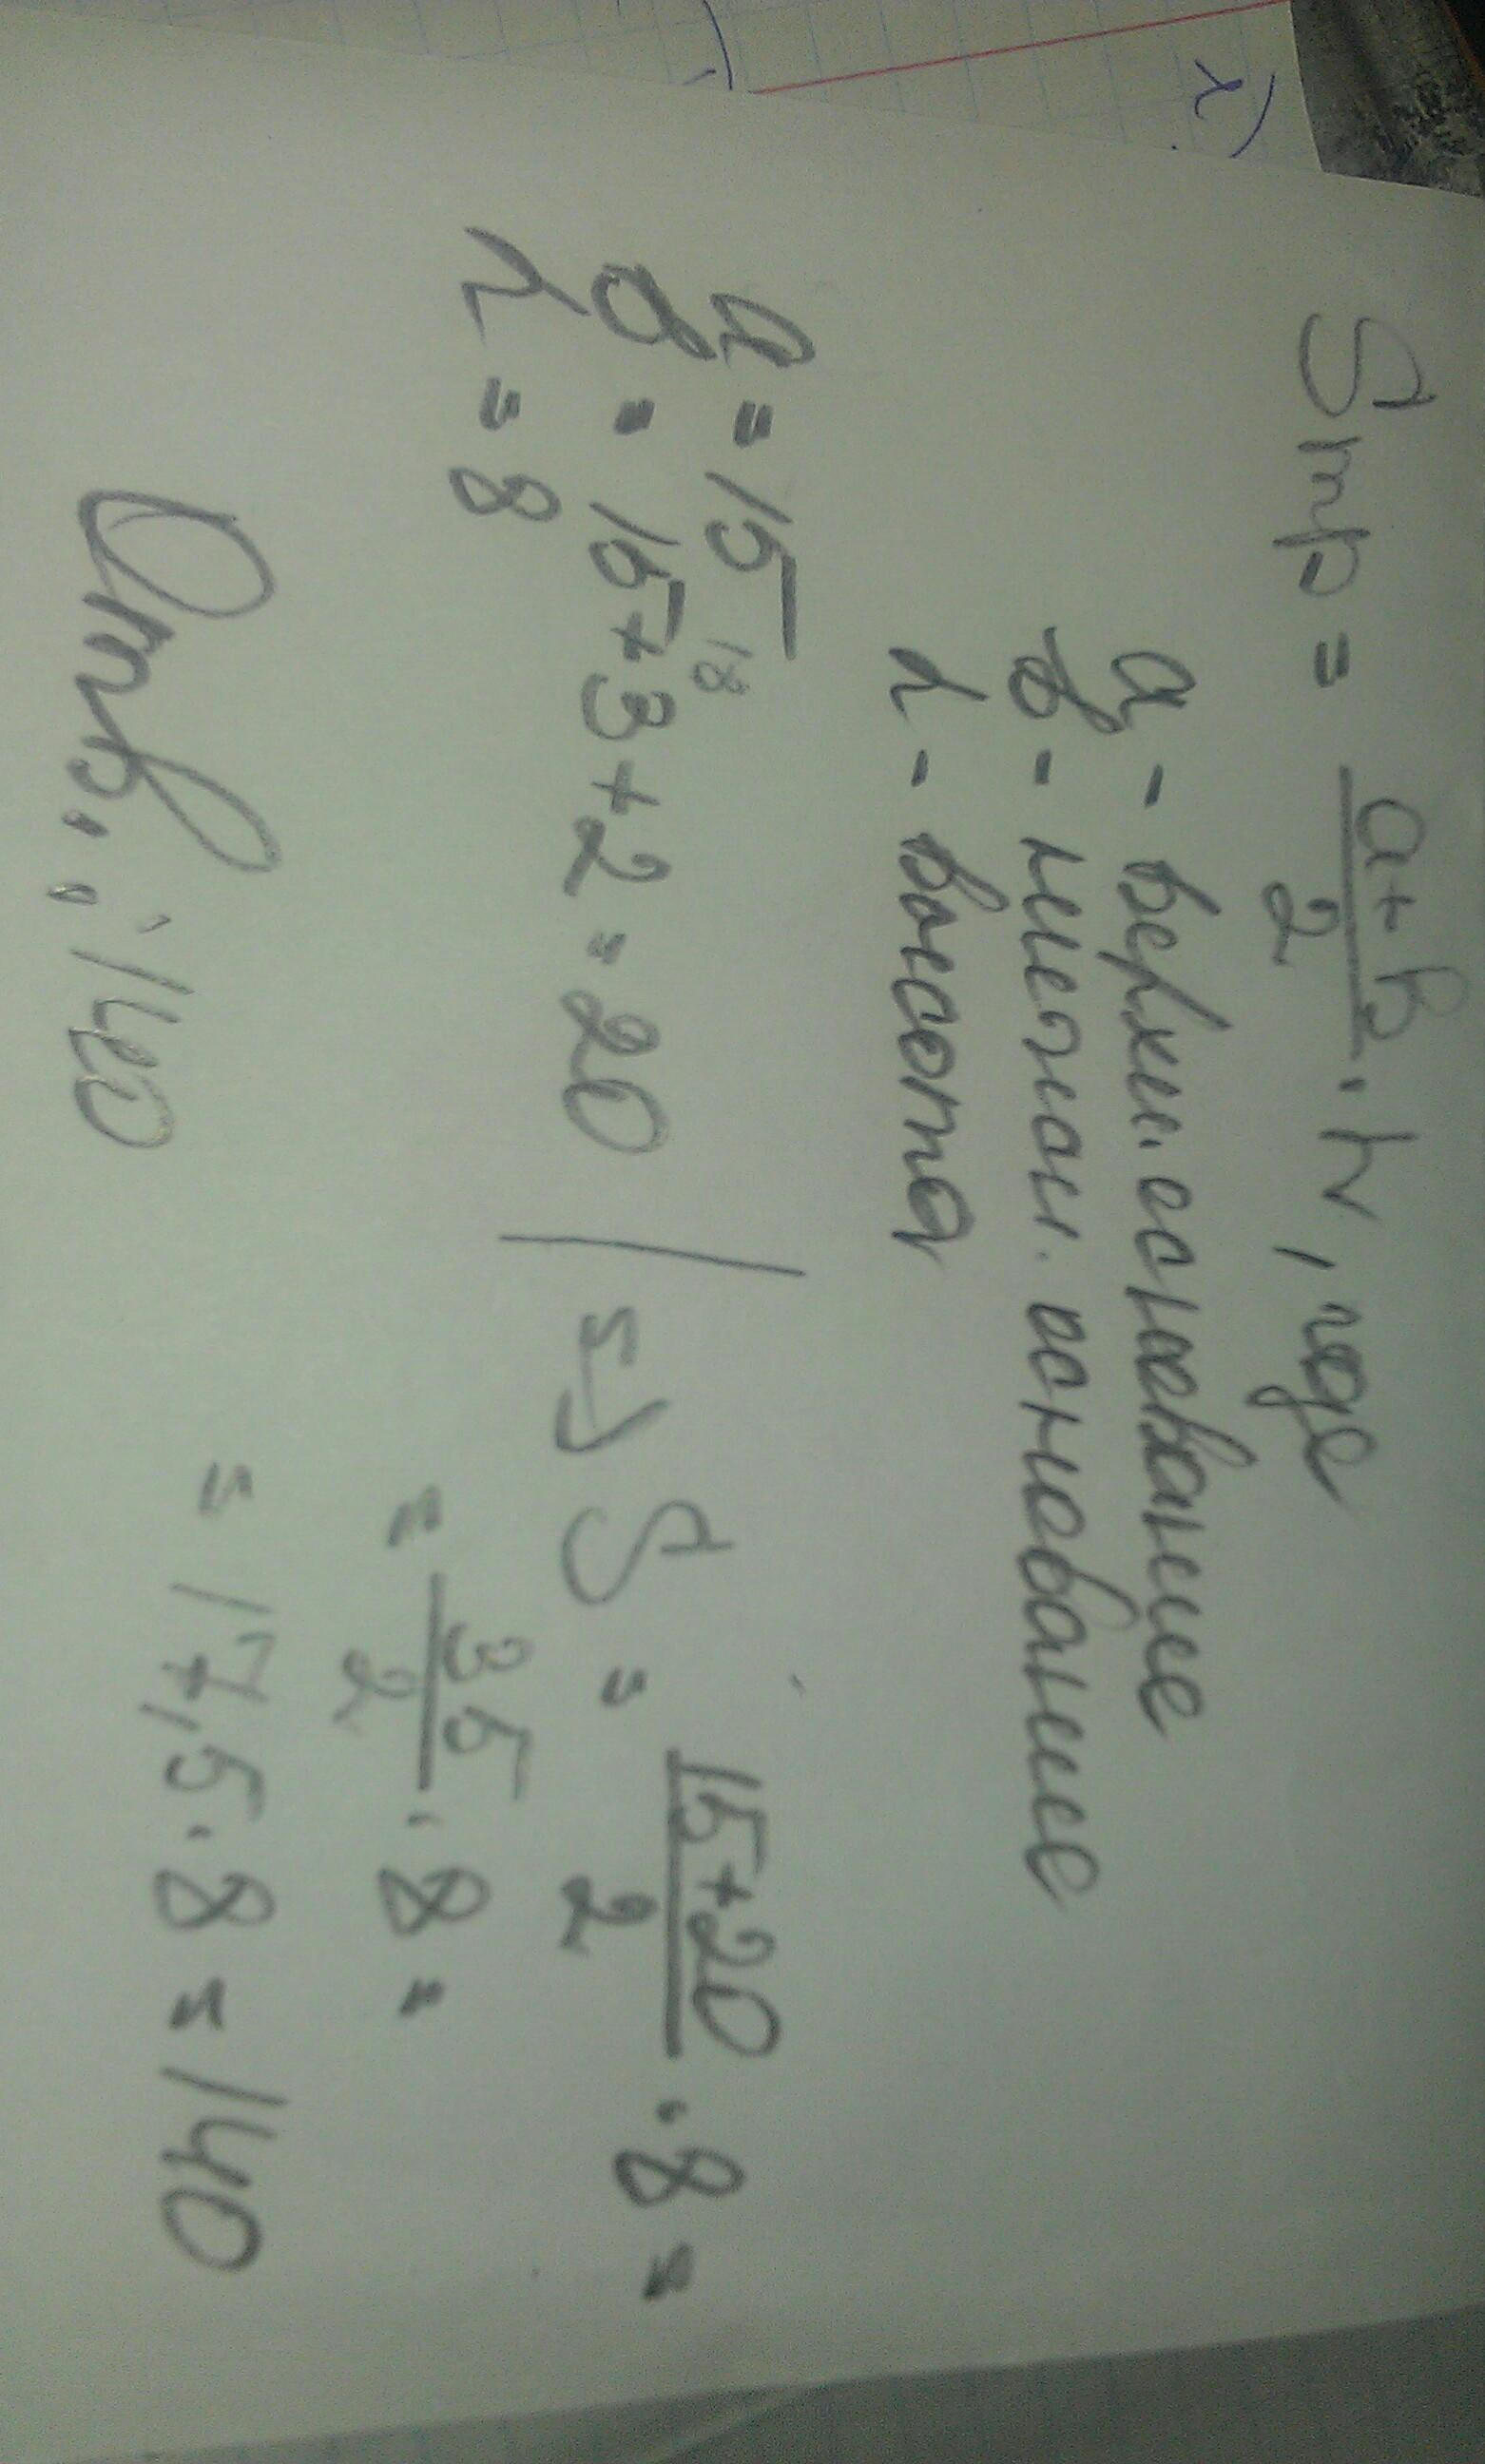 Sтр = a+b/2 · h, где
a - верхн. основание
b - нижн. основание
h - высота
a = 15
18
b = 15+3+2=20 | => S = 15+20/2 · 8 =
h = 8
= 35/2 · 8 =
= 17,5 · 8 = 140
Отв.: 140